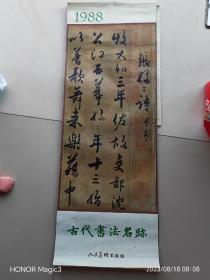 1988
張好〻詩 并序
牧大和三年佐故吏部沈
公江西幕好〻年十三始
以善歌舞來樂籍中
古代書法名跡
人民美术出版社
HONOR Magic3
2023/08/18 08:08